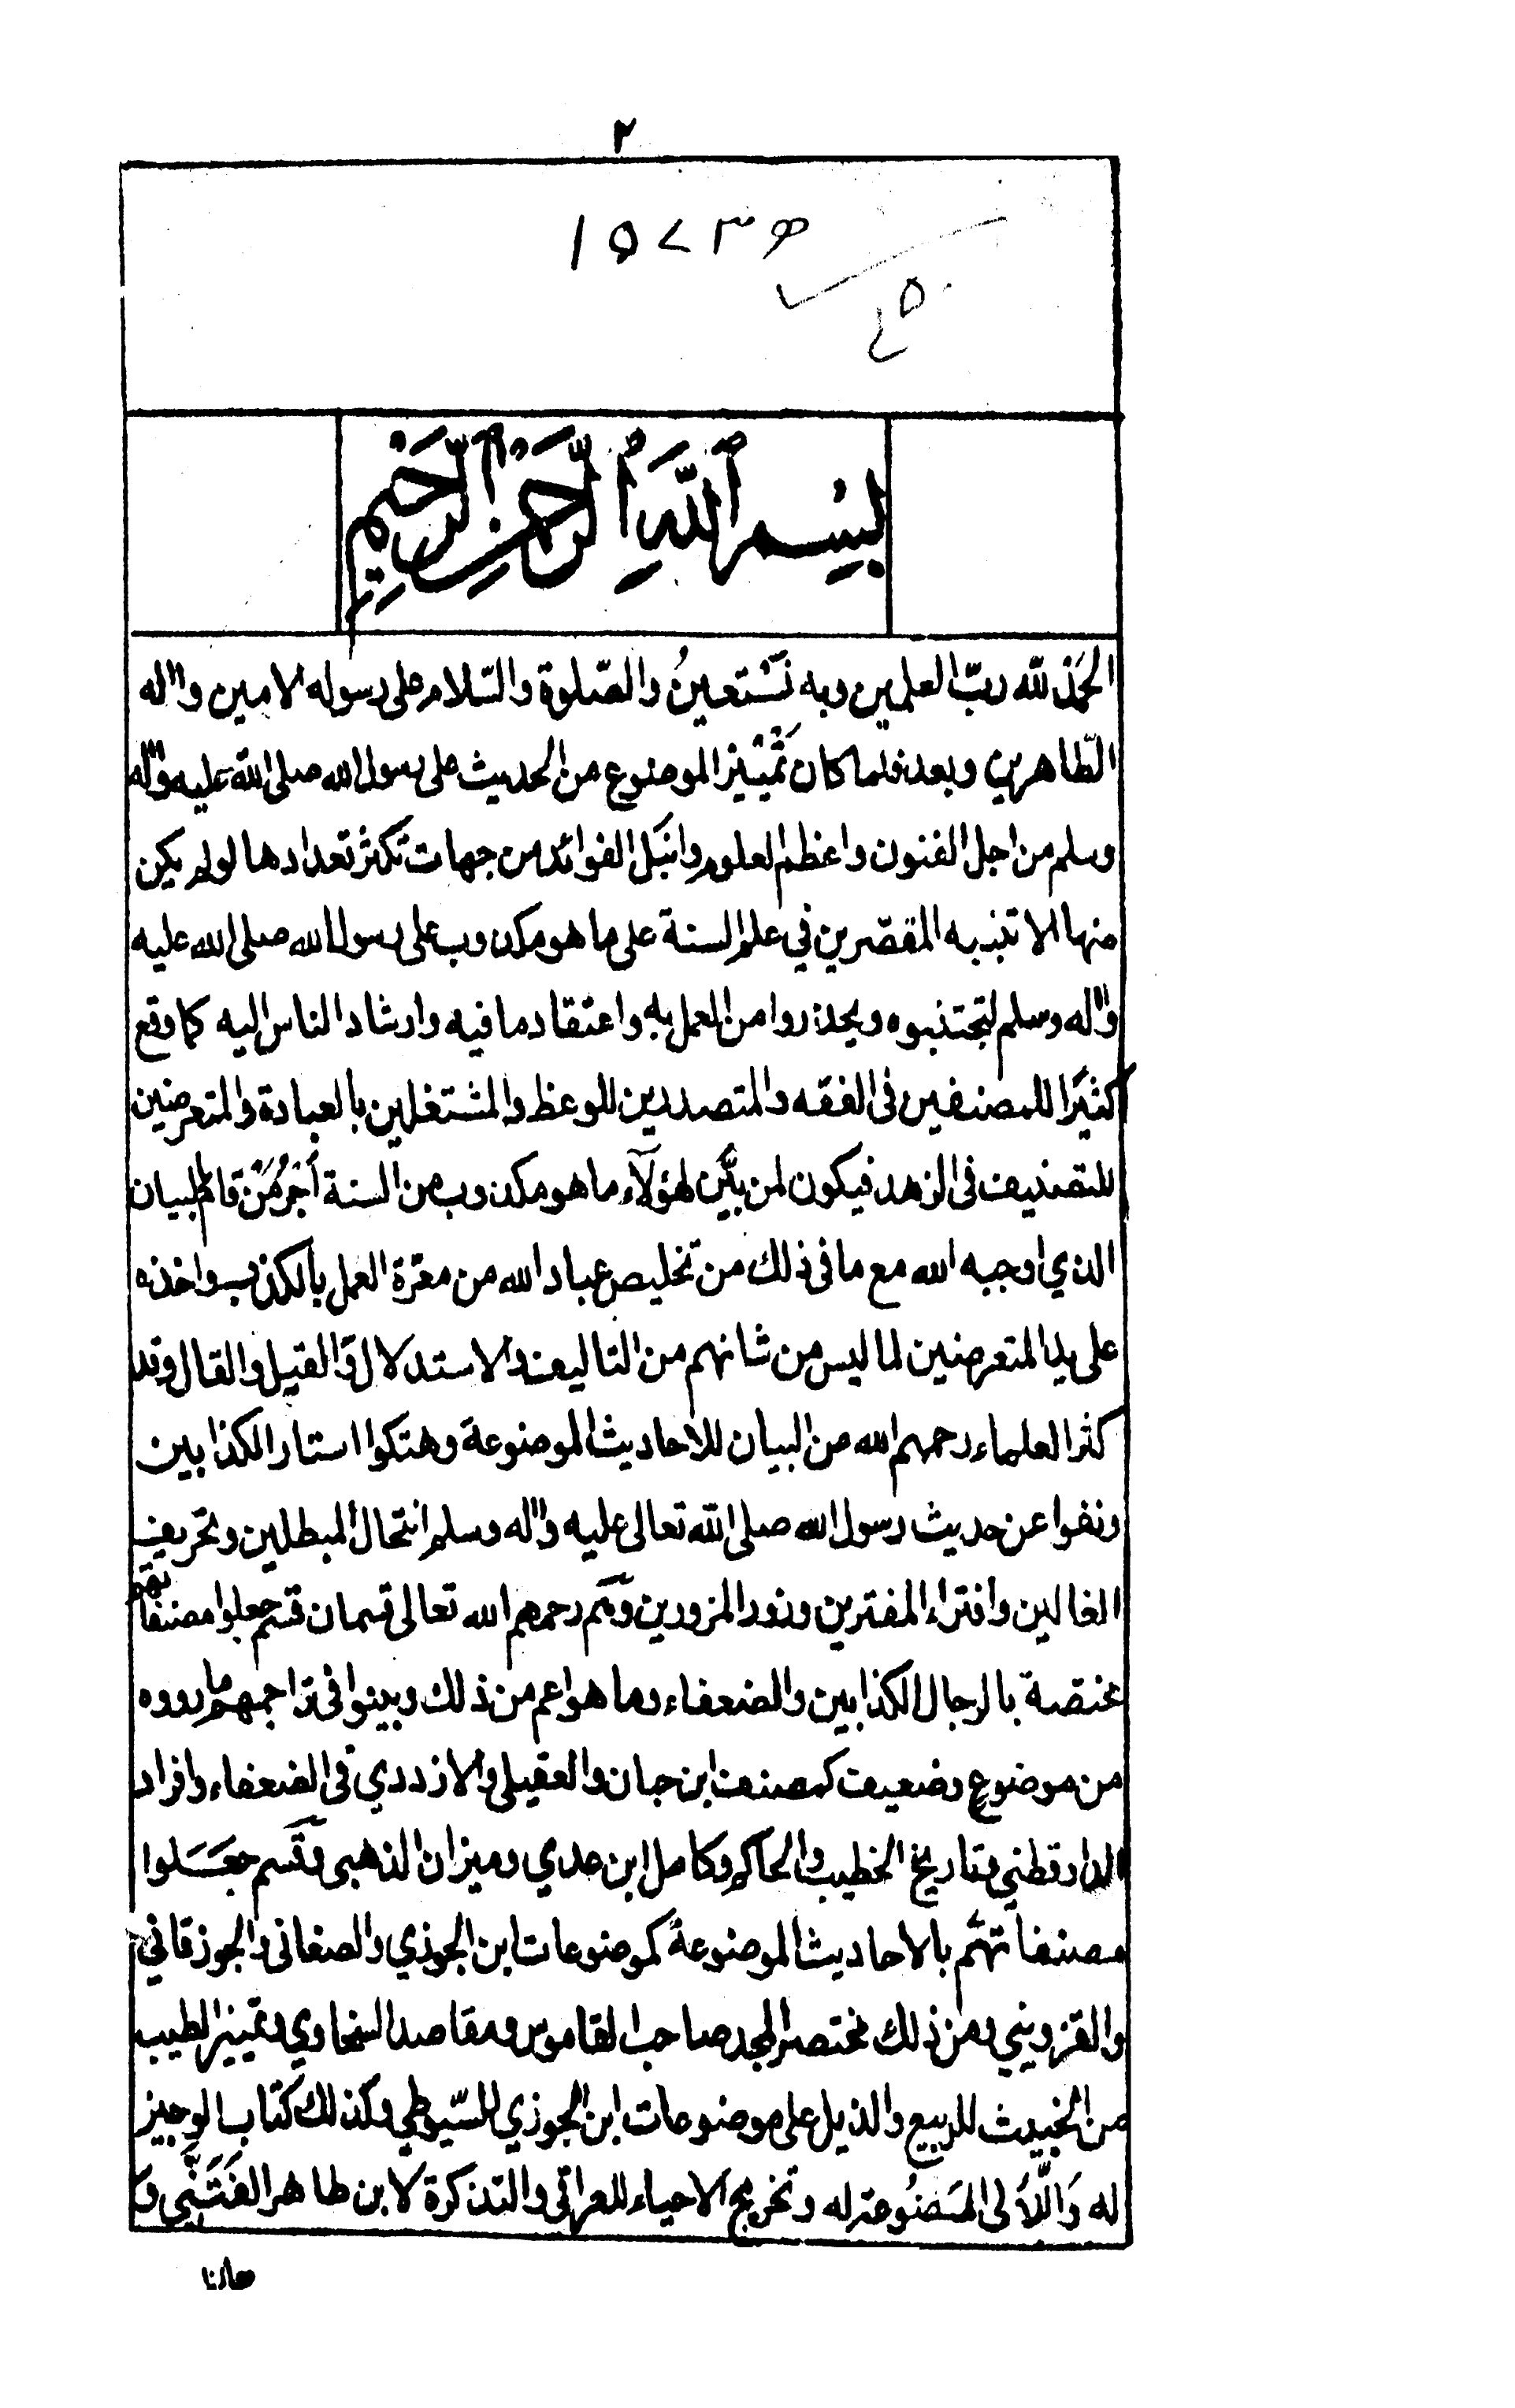 ٢
١٥٧٣ھ
٤٥
بِسْمِ ٱللَّهِ ٱلرَّحْمَٰنِ ٱلرَّحِيْمِ
الحَمْدُ للّه ربّ العلمين وبه نَسْتعينُ والصّلوة والسّلام على رسوله الامين واٰله
الطّاهرين وبعد فلما كان تَمْيِيْز الموضوع من الحديث على رسول الله صلى اللّٰه عليه واٰله
وسلم من اجل الفنون واعظم العلوم وانبَل الفوائد من جهات تَكثر تعدادها لولم يكن
منها الا تنبيه المقصّرين في علم السنة على ما هو مكذوب على رسول الله صلى الله عليه
واٰله وسلم ليجتنبوه ويحذروا من العمل به واعتقاد ما فيه وارشاد الناس اليه كما وقع
كثيَرًا للمصنفين فى الفقه والمتصدرين للوعظ والمشتغلين بالعبادة والمتعرضين
للتصنيف فى الزهد فيكون لمن بيَّن لهؤلآء ما هو مكذوب من السنة أَجْرُ مَنْ قام بالبيان
الذي اوجبه الله مع ما فى ذلك من تخليص عباد الله من معرّة العمل بالكذب واخذه
على يد المتعرضين لما ليس من شانهم من التاليف والاستدلال وَالقيل والقال وقد
كثر العلماء رحمهم الله من البيان للاحاديث الموضوعة وهتكوا استار الكذابين
ونفوا عن حديث رسول الله صلى اللّٰه تعالى عليه واٰله وسلم انتحال المبطلين وتحريف
الغالين وافتراء المفترين وزور المزورين وهُم رحمهم الله تعالى قسمان قسم جعلوا مصنفاتهم
مختصة بالرجال الكذابين والضعفاء وما هو اعم من ذلك وبينوا فى تراجمهم ما رووه
من موضوع وضعيف كمصنف ابن حبان والعقيلى والازدي فى الضعفاء وافراد
الدارقطني وتاريخ الخطيب والحاكم وكامل ابن عدي وميزان الذهبى وقسم جعَلوا
مصنفاتهُم بالاحاديث الموضوعة كموضوعات ابن الجوزي والصغانى والجوزقاني
والقزويني ومن ذلك مختصر المجد صاحب القاموس ومقاصد السخاوي وتمييز الطيب
من الخبيث للربيع والذيل على موضوعات ابن الجوزي للسّيوطي وكذلك كتاب الوجيز
له وَاللّاَلى المَصنُوعة له وتخريج الاحياء للعراقى والتذكرة لابن طاهر الفَتَنَّى و